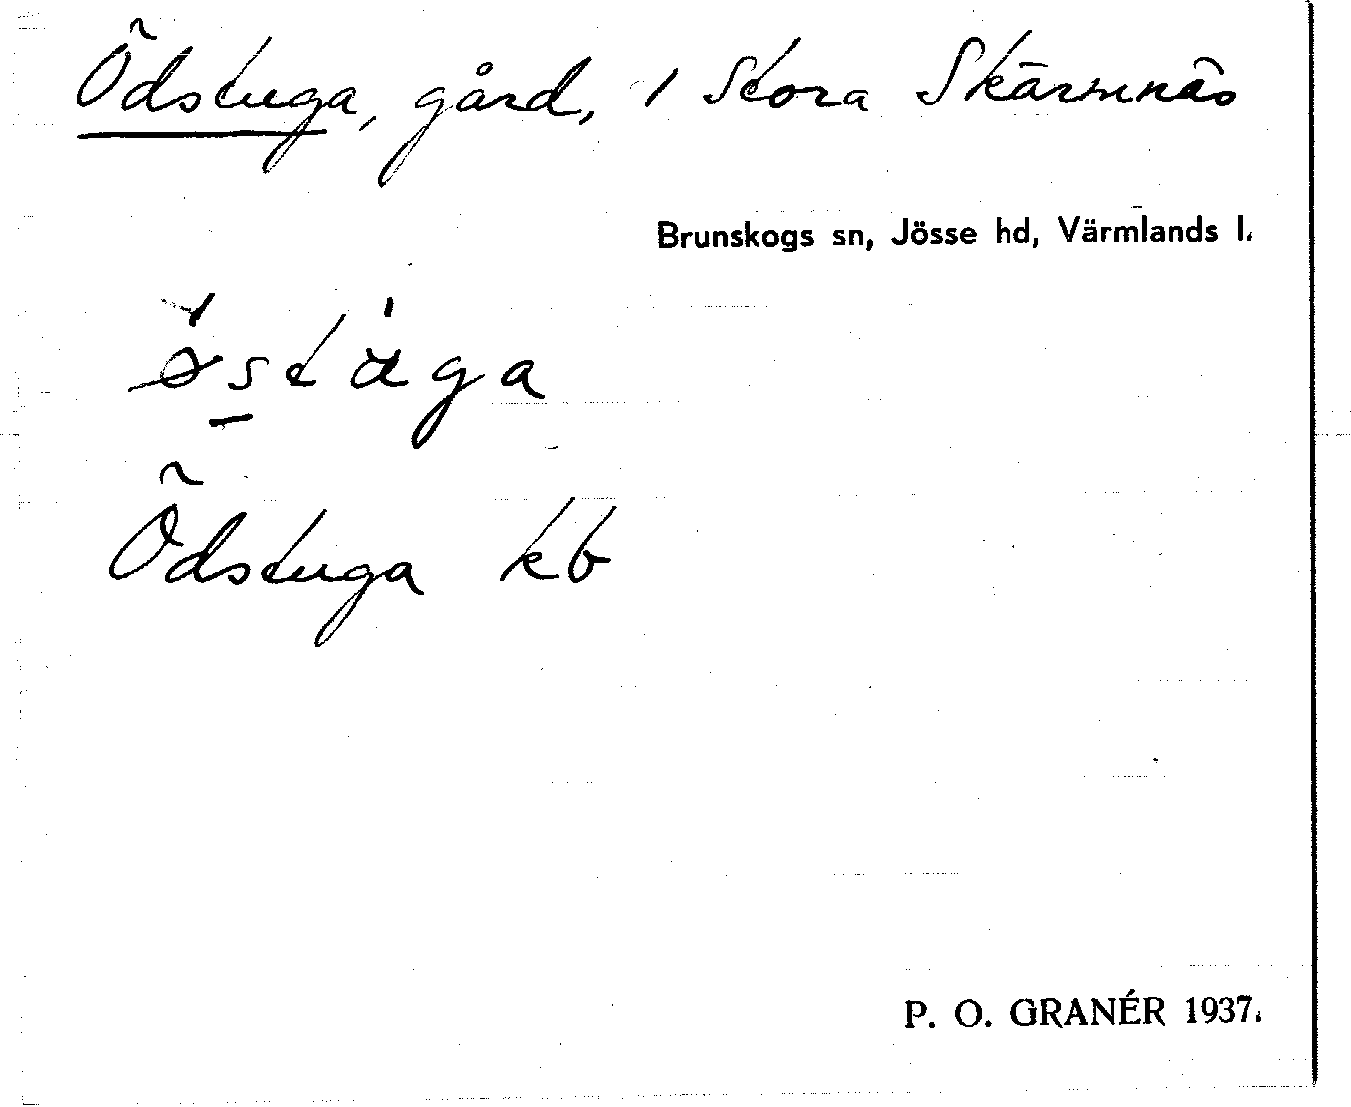 Ödstuga, gård, 1 Stora Skärmnäs
Brunskogs sn, Jösse hd, Värmlands l.
Ödstuga kb
P. O. GRANÉR 1937.